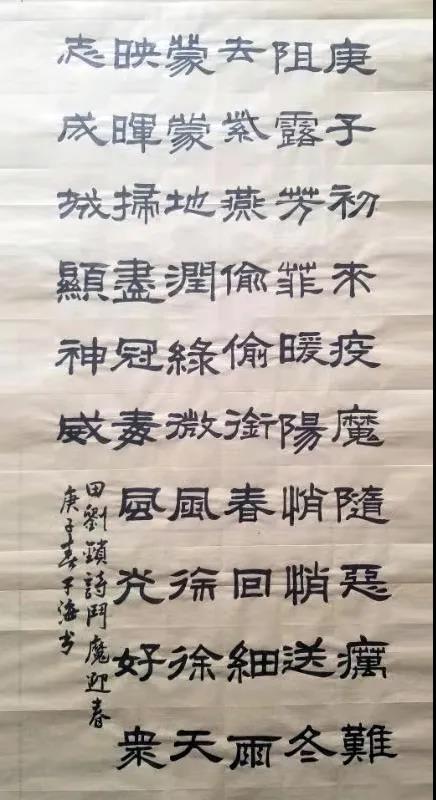 庚子初來疫魔隨惡癘難
阻露芳菲暖陽悄悄送冬
去紫燕偷偷銜春回細雨
蒙蒙地潤綠微風徐徐天
映暉掃盡冠毒風光好衆
志成城顯神威
田劉鎖詩鬥魔迎春
庚子春于海书